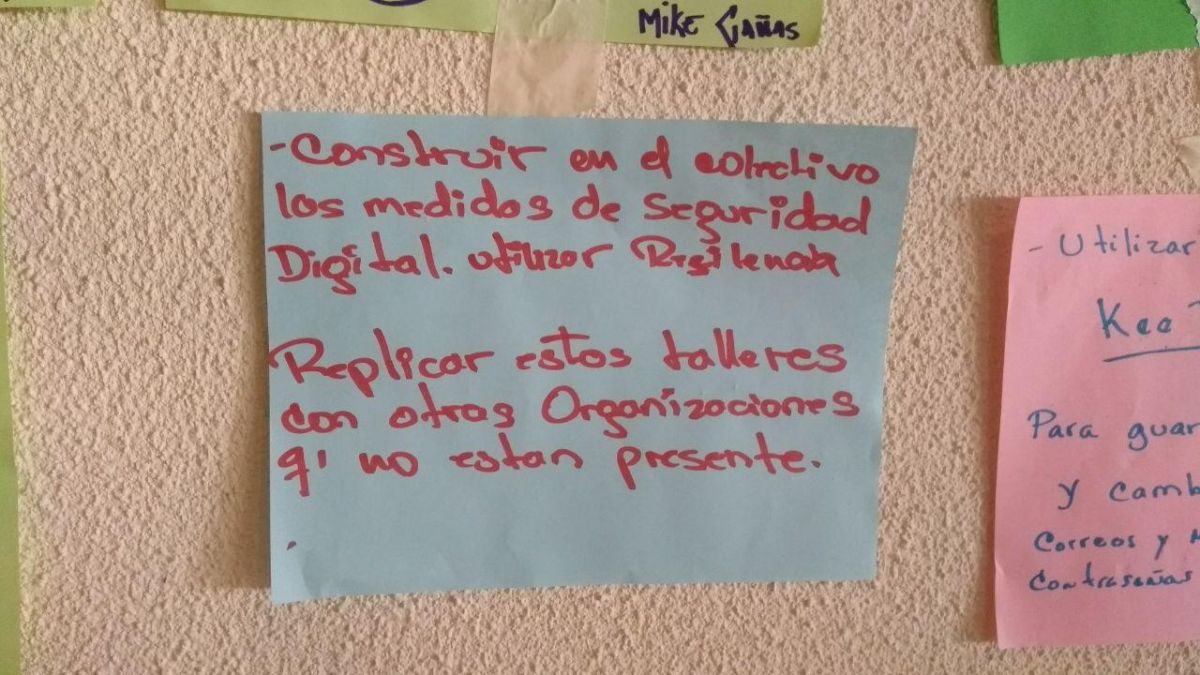 MIKE CAÑAS
- Construir en el colectivo
las medidas de Seguridad
Digital. utilizar
Replicar estos talleres
con otras Organizaciones
q' no estan presente.
- Utilizar
Kee
Para guar
y camb
Correos y
Contraseñas